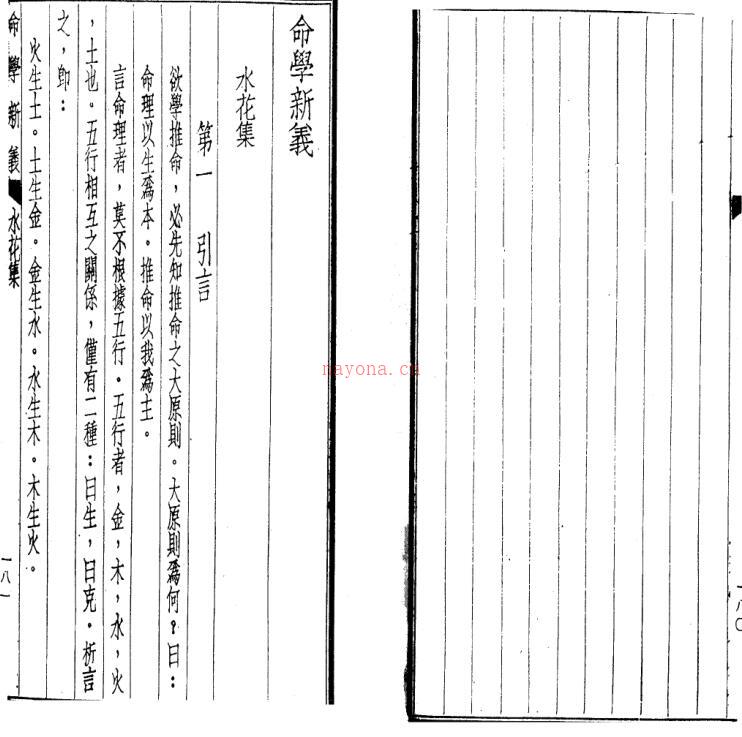 命學新義
水花集
第一　引言
欲學推命，必先知推命之大原則。大原則爲何？曰：
命理以生爲本。推命以我爲主。
言命理者，莫不根據五行。五行者，金，木，水，火
，土也。五行相互之關係，僅有二種：曰生，曰克。析言
之，卽：
火生土。土生金。金生水。水生木。木生火。
命學新義　水花集
一八一
一八〇
nayona.cn